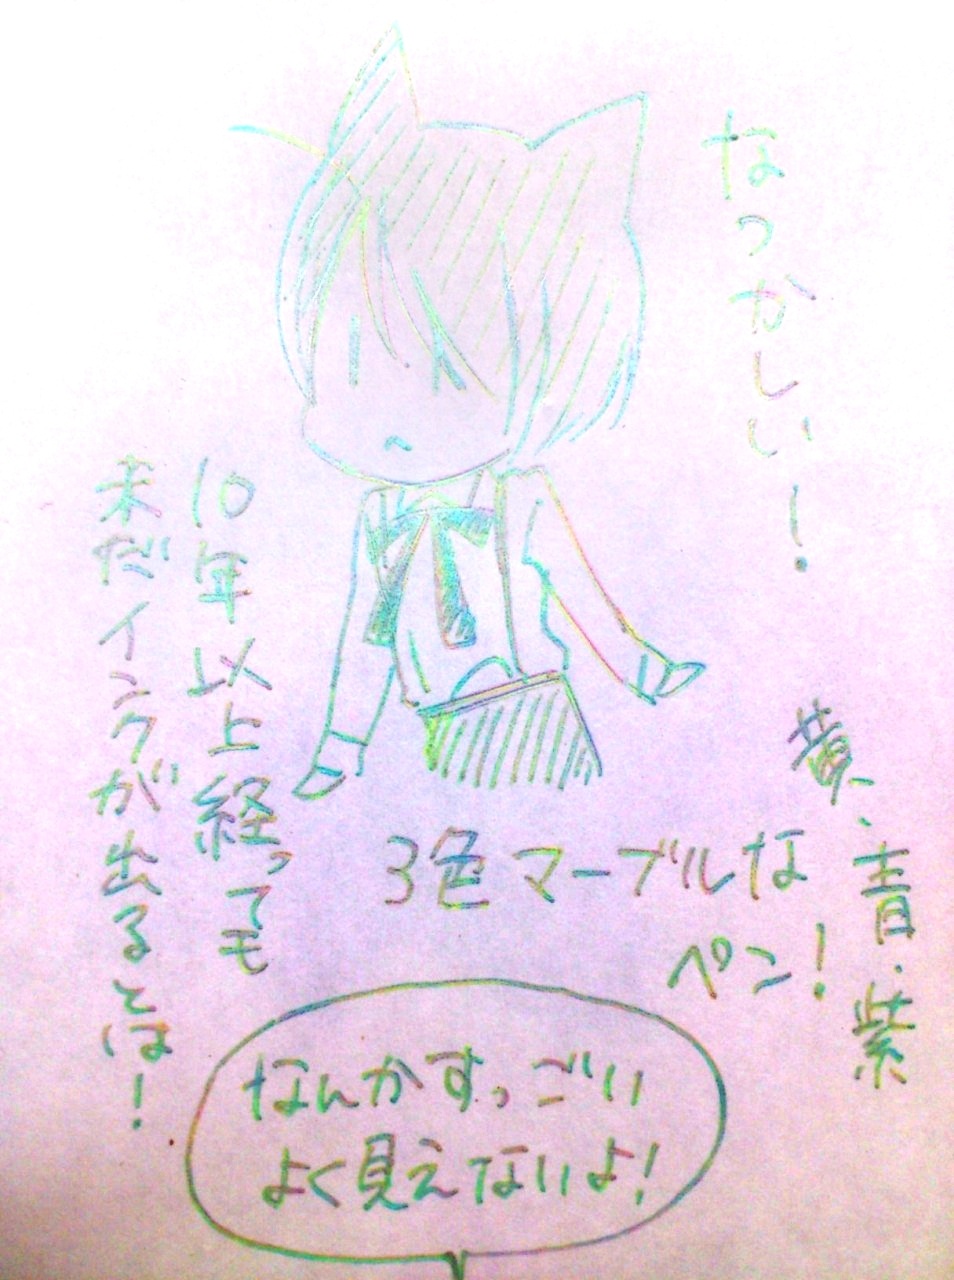 なつかしい！
黄、青、紫
3色マーブルな
ペン！
10年以上経っても
未だインクが出るとは！
なんかすっごい
よく見えないよ！